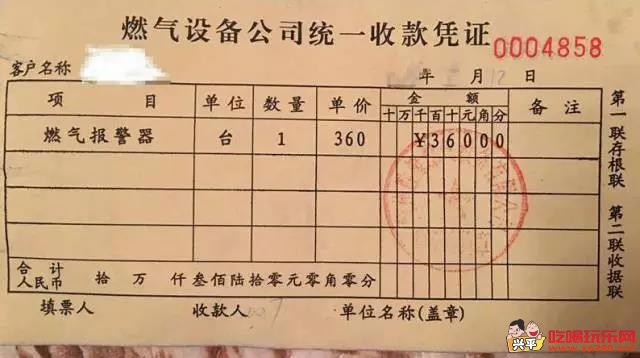 燃气设备公司统一收款凭证 0004858
客户名称 年 月12日
项目 单位 数量 单价 金额 备注
十万千百十元角分
燃气报警器 台 1 360 ¥36000
合计人民币 拾 万 仟叁佰陆拾零元零角零分
填票人 收款人 单位名称(盖章)
第一联存根联 第二联收据联
兴平 吃喝玩乐网